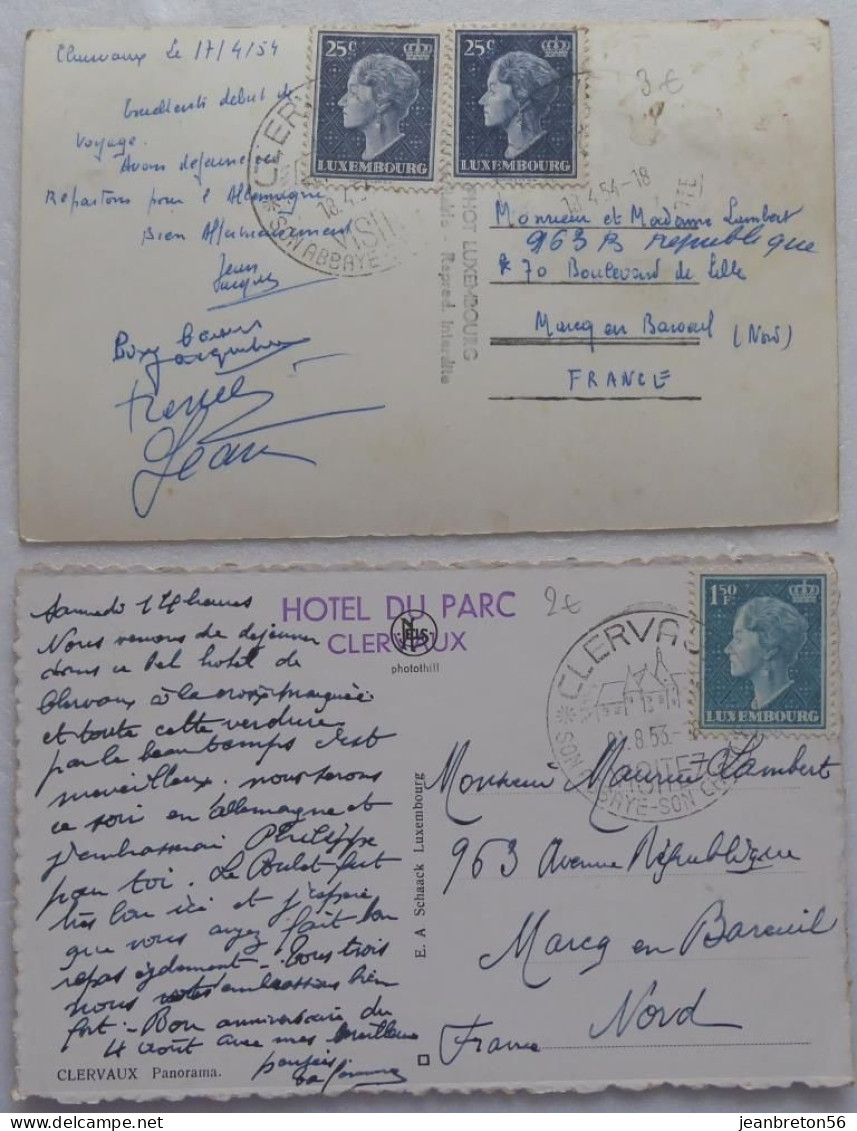 Clervaux Le 17/4/54
25c
25c
LUXEMBOURG
LUXEMBOURG
3 €
Excellent début de
voyage.
Avons déjeuné ici
Repartons pour l'Allemagne
Bien Affectueusement
Jean
Jacques
CLERV
18.4.54
VISIT
SON ABBAYE
18.4.54-18
PHOT LUXEMBOURG
Reprod. Interdite
Monsieur et Madame Lambert
963 B République
70 Boulevard de Lille
Marcq en Baroeul
(Nord)
FRANCE
Jean
Samedi 14 heures
HOTEL DU PARC
CLERVAUX
NELS
photothill
2€
1.50
F.
LUXEMBOURG
CLERVA
8.53.
VISITEZ
SON ABBAYE-SON
Nous venons de déjeuner
dans ce bel hotel de
Clervaux à la croix marquée
et toute cette verdure
par le beau temps c'est
merveilleux. nous serons
ce soir en allemagne et
j'embrasserai Philippe
pour toi. Le Poulet fut
très bon ici et j'espère
que vous avez fait bon
repas également - Tous trois
nous vous embrassons bien
fort - Bon anniversaire du
4 août avec mes meilleures
pensées
E. A Schaack Luxembourg
Monsieur Maurice Lambert
963 Avenue République
Marcq en Bareuil
Nord
France
CLERVAUX Panorama.
jeanbreton56